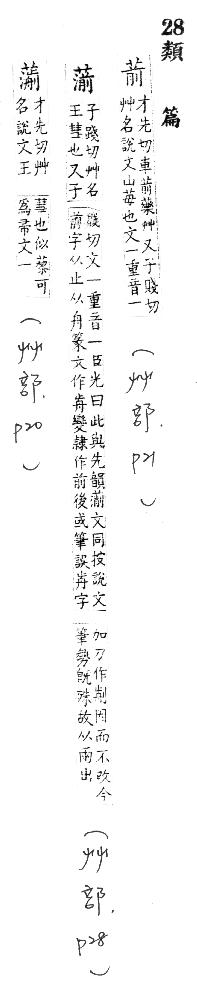 28類 篇
葥 才先切車葥藥艸又子賤切
艸名說文山莓也文一重音一
(艸部. p21)
子踐切艸名
王彗也又子
賤切文一重音一臣光曰此與先韻文同按說文
前字从止从舟篆文作歬變隸作前後或筆誤歬字
加刀作剪因而不改今
筆勢既殊故从兩出
(艸部. p28)
才先切艸
名說文王
彗也似藜可
為帚文一
(艸部. p20)